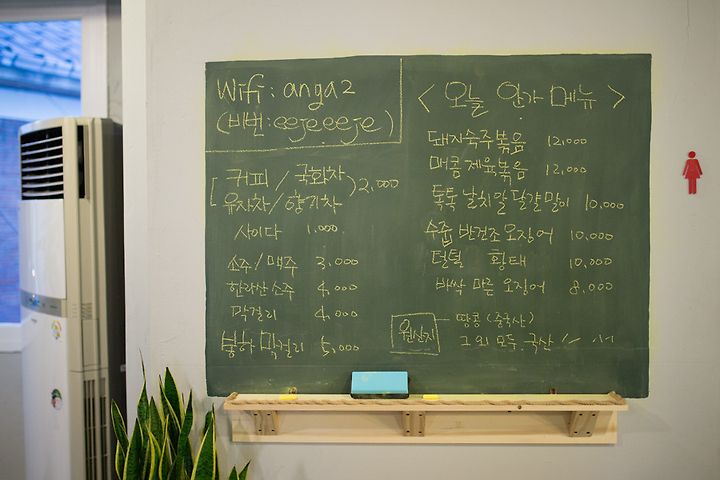 Wifi: anga2
(비번: eejeeeje)
커피 / 국화차
유자차 / 향기차
2,000
사이다 1.000
소주 / 맥주 3,000
한라산소주 4,000
막걸리 4,000
봉하 막걸리 5,000
< 오늘 안가 메뉴 >
돼지숙주볶음 12,000
매콤제육볶음 12,000
톡톡 날치알 달걀말이 10,000
수줍 반건조 오징어 10,000
털털 황태 10,000
바싹 마른 오징어 8,000
원산지
땅콩 (중국산)
그 외 모두 국산